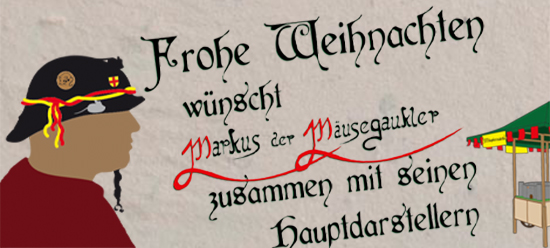 Frohe Weihnachten
wünscht
Markus der Mäusegaukler
zusammen mit seinen
Hauptdarstellern